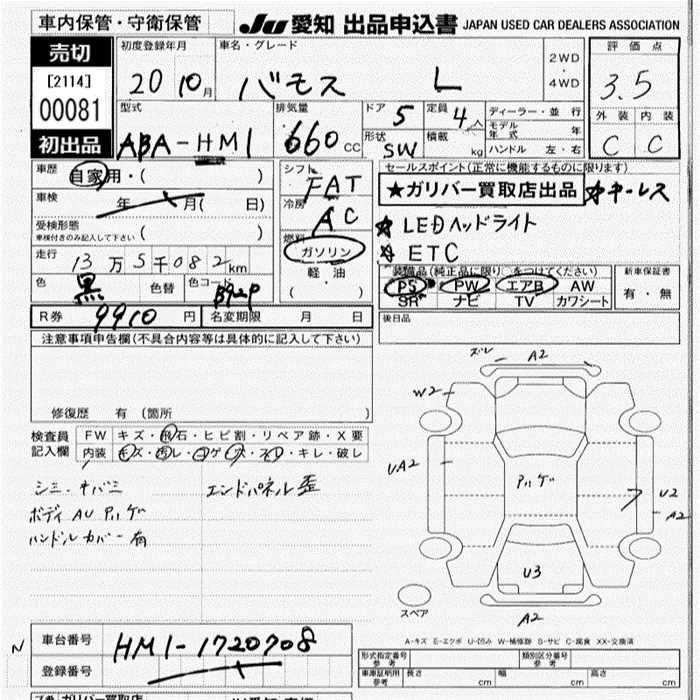 車内保管・守衛保管
JU 愛知 出品申込書 JAPAN USED CAR DEALERS ASSOCIATION
売切
[2114]
00081
初出品
初度登録年月
20 10月
車名・グレード
バモス L
2WD
・
4WD
評価点
3.5
外装 内装
C C
型式
ABA-HM1
排気量
660 CC
ドア 5
定員 4人
形状 SW
積載 kg
ディーラー・並行
モデル年式 年
ハンドル 左・右
車歴
自家用・( )
車検 年 月( 日)
受検形態
車検付きのみ記入して下さい ( )
走行
13万5千082km
色 黒 色替 色コード B92P
シフト
FAT
冷房
AC
燃料
ガソリン
軽油
( )
セールスポイント(正常に機能するものに限ります)
★ガリバー買取店出品 ★キーレス
★ LEDヘッドライト
★ ETC
装備品(純正品に限り○をつけてください)
PS PW エアB AW
SR ナビ TV カワシート
新車保証書
有・無
R券 9910 円 名変期限 月 日
後日品
注意事項申告欄(不具合内容等は具体的に記入して下さい)
修復歴 有 (箇所 )
検査員
記入欄
FW キズ・飛石・ヒビ割・リペア跡・X要
内装 キズ・汚レ・コゲ・穴・スレ・キレ・破レ
シミ・キバミ
エンドパネル歪
ボディ AU アハゲ
ハンドルカバー有
ズレ A2
W2
UA2
アハゲ
U2
A2
U3
スペア
A2
A-キズ E-エクボ U-凹み W-補修跡 S-サビ C-腐食 XX-交換済
車台番号
HM1-1720708
登録番号
形式指定番号
参考
類別区分番号
参考
車庫証明用
参考
長さ cm 幅 cm 高さ cm